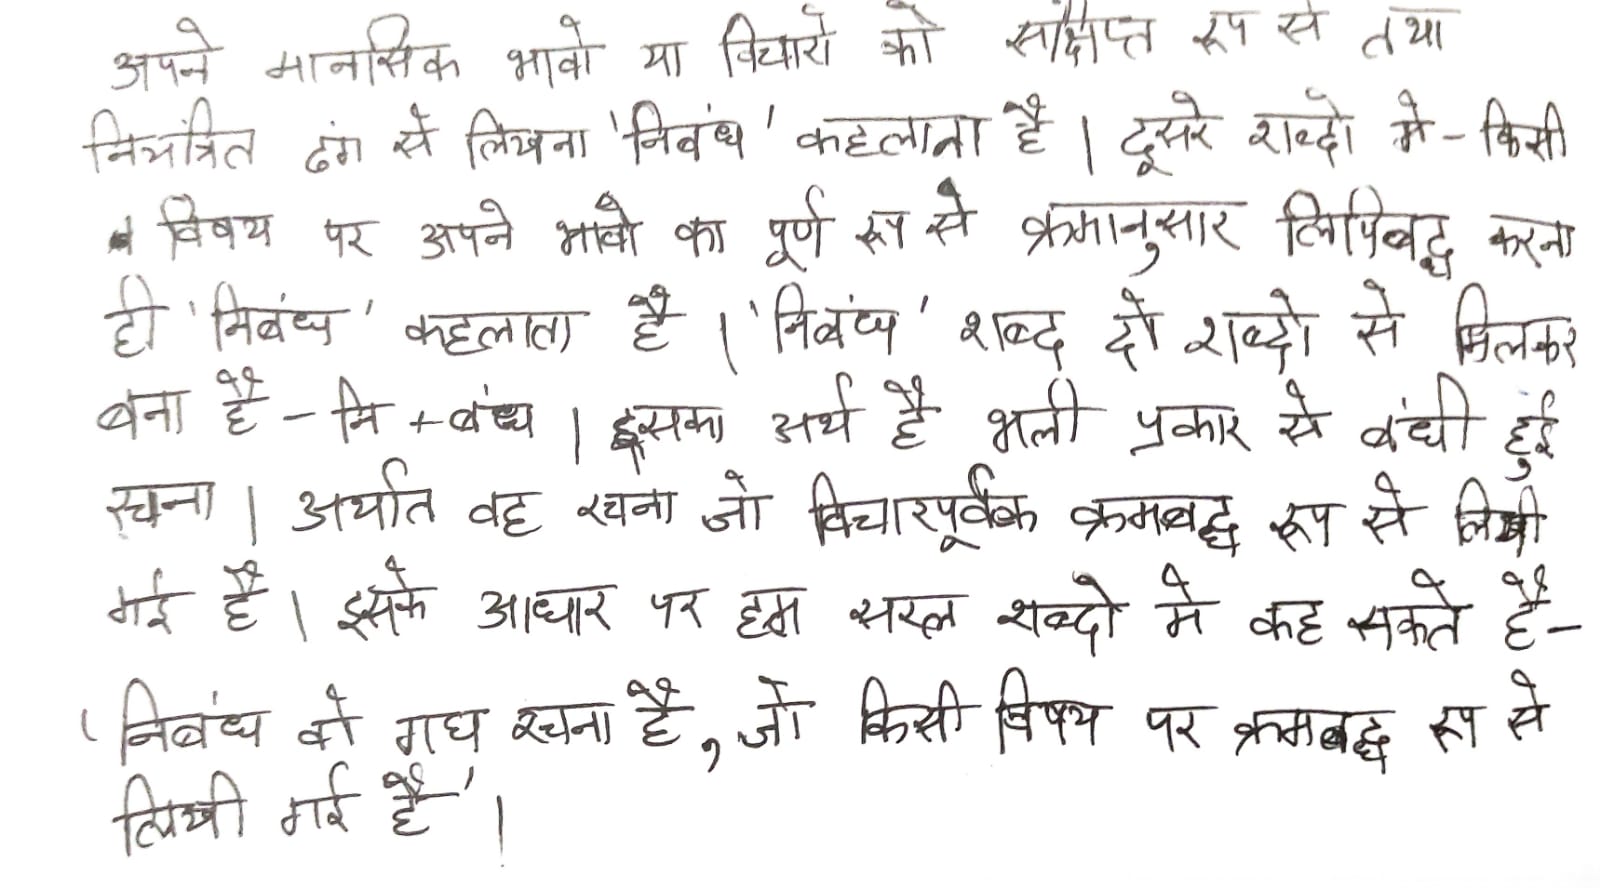 अपने मानसिक भावो या विचारो को संक्षिप्त रूप से तथा
नियंत्रित ढंग से लिखना 'निबंध' कहलाता है । दूसरे शब्दो मे - किसी
विषय पर अपने भावो का पूर्ण रूप से क्रमानुसार लिपिबद्ध करना
ही 'निबंध' कहलाता है । 'निबंध' शब्द दो शब्दो से मिलकर
बना है - नि + बंध । इसका अर्थ है भली प्रकार से बंधी हुई
रचना । अर्थात वह रचना जो विचारपूर्वक क्रमबद्ध रूप से लिखी
गई है । इसके आधार पर हम सरल शब्दो मे कह सकते है -
'निबंध वो गद्य रचना है, जो किसी विषय पर क्रमबद्ध रूप से
लिखी गई है' ।